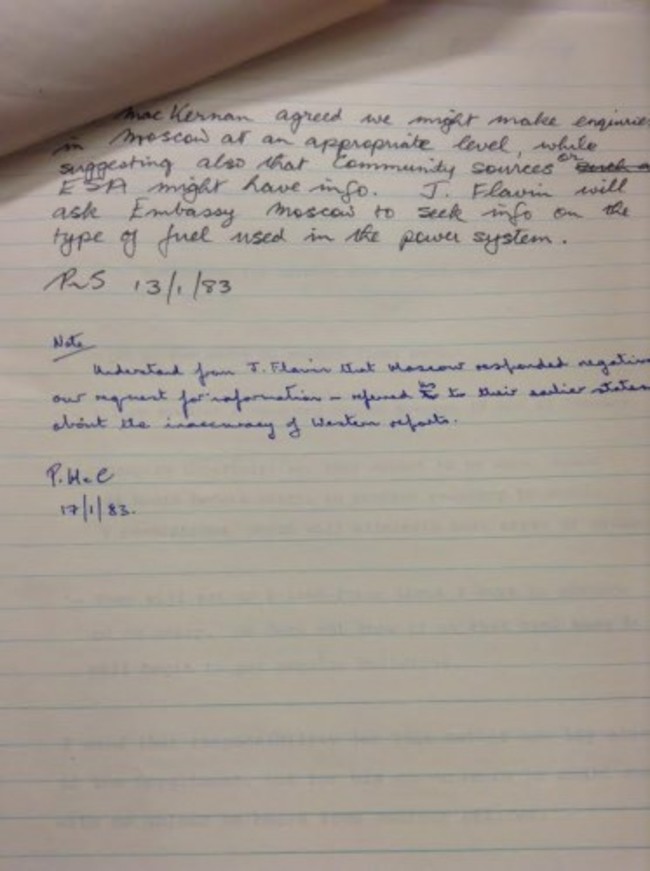 Mac Kernan agreed we might make enquiries
in Moscow at an appropriate level, while
suggesting also that Community sources or
ESA might have info. J. Flavin will
ask Embassy Moscow to seek info on the
type of fuel used in the power system.
PMS 13/1/83
Note
Understand from J. Flavin that Moscow responded negative
our request for information - referred to their earlier statem
about the inaccuracy of Western reports.
P. McC
17/1/83.